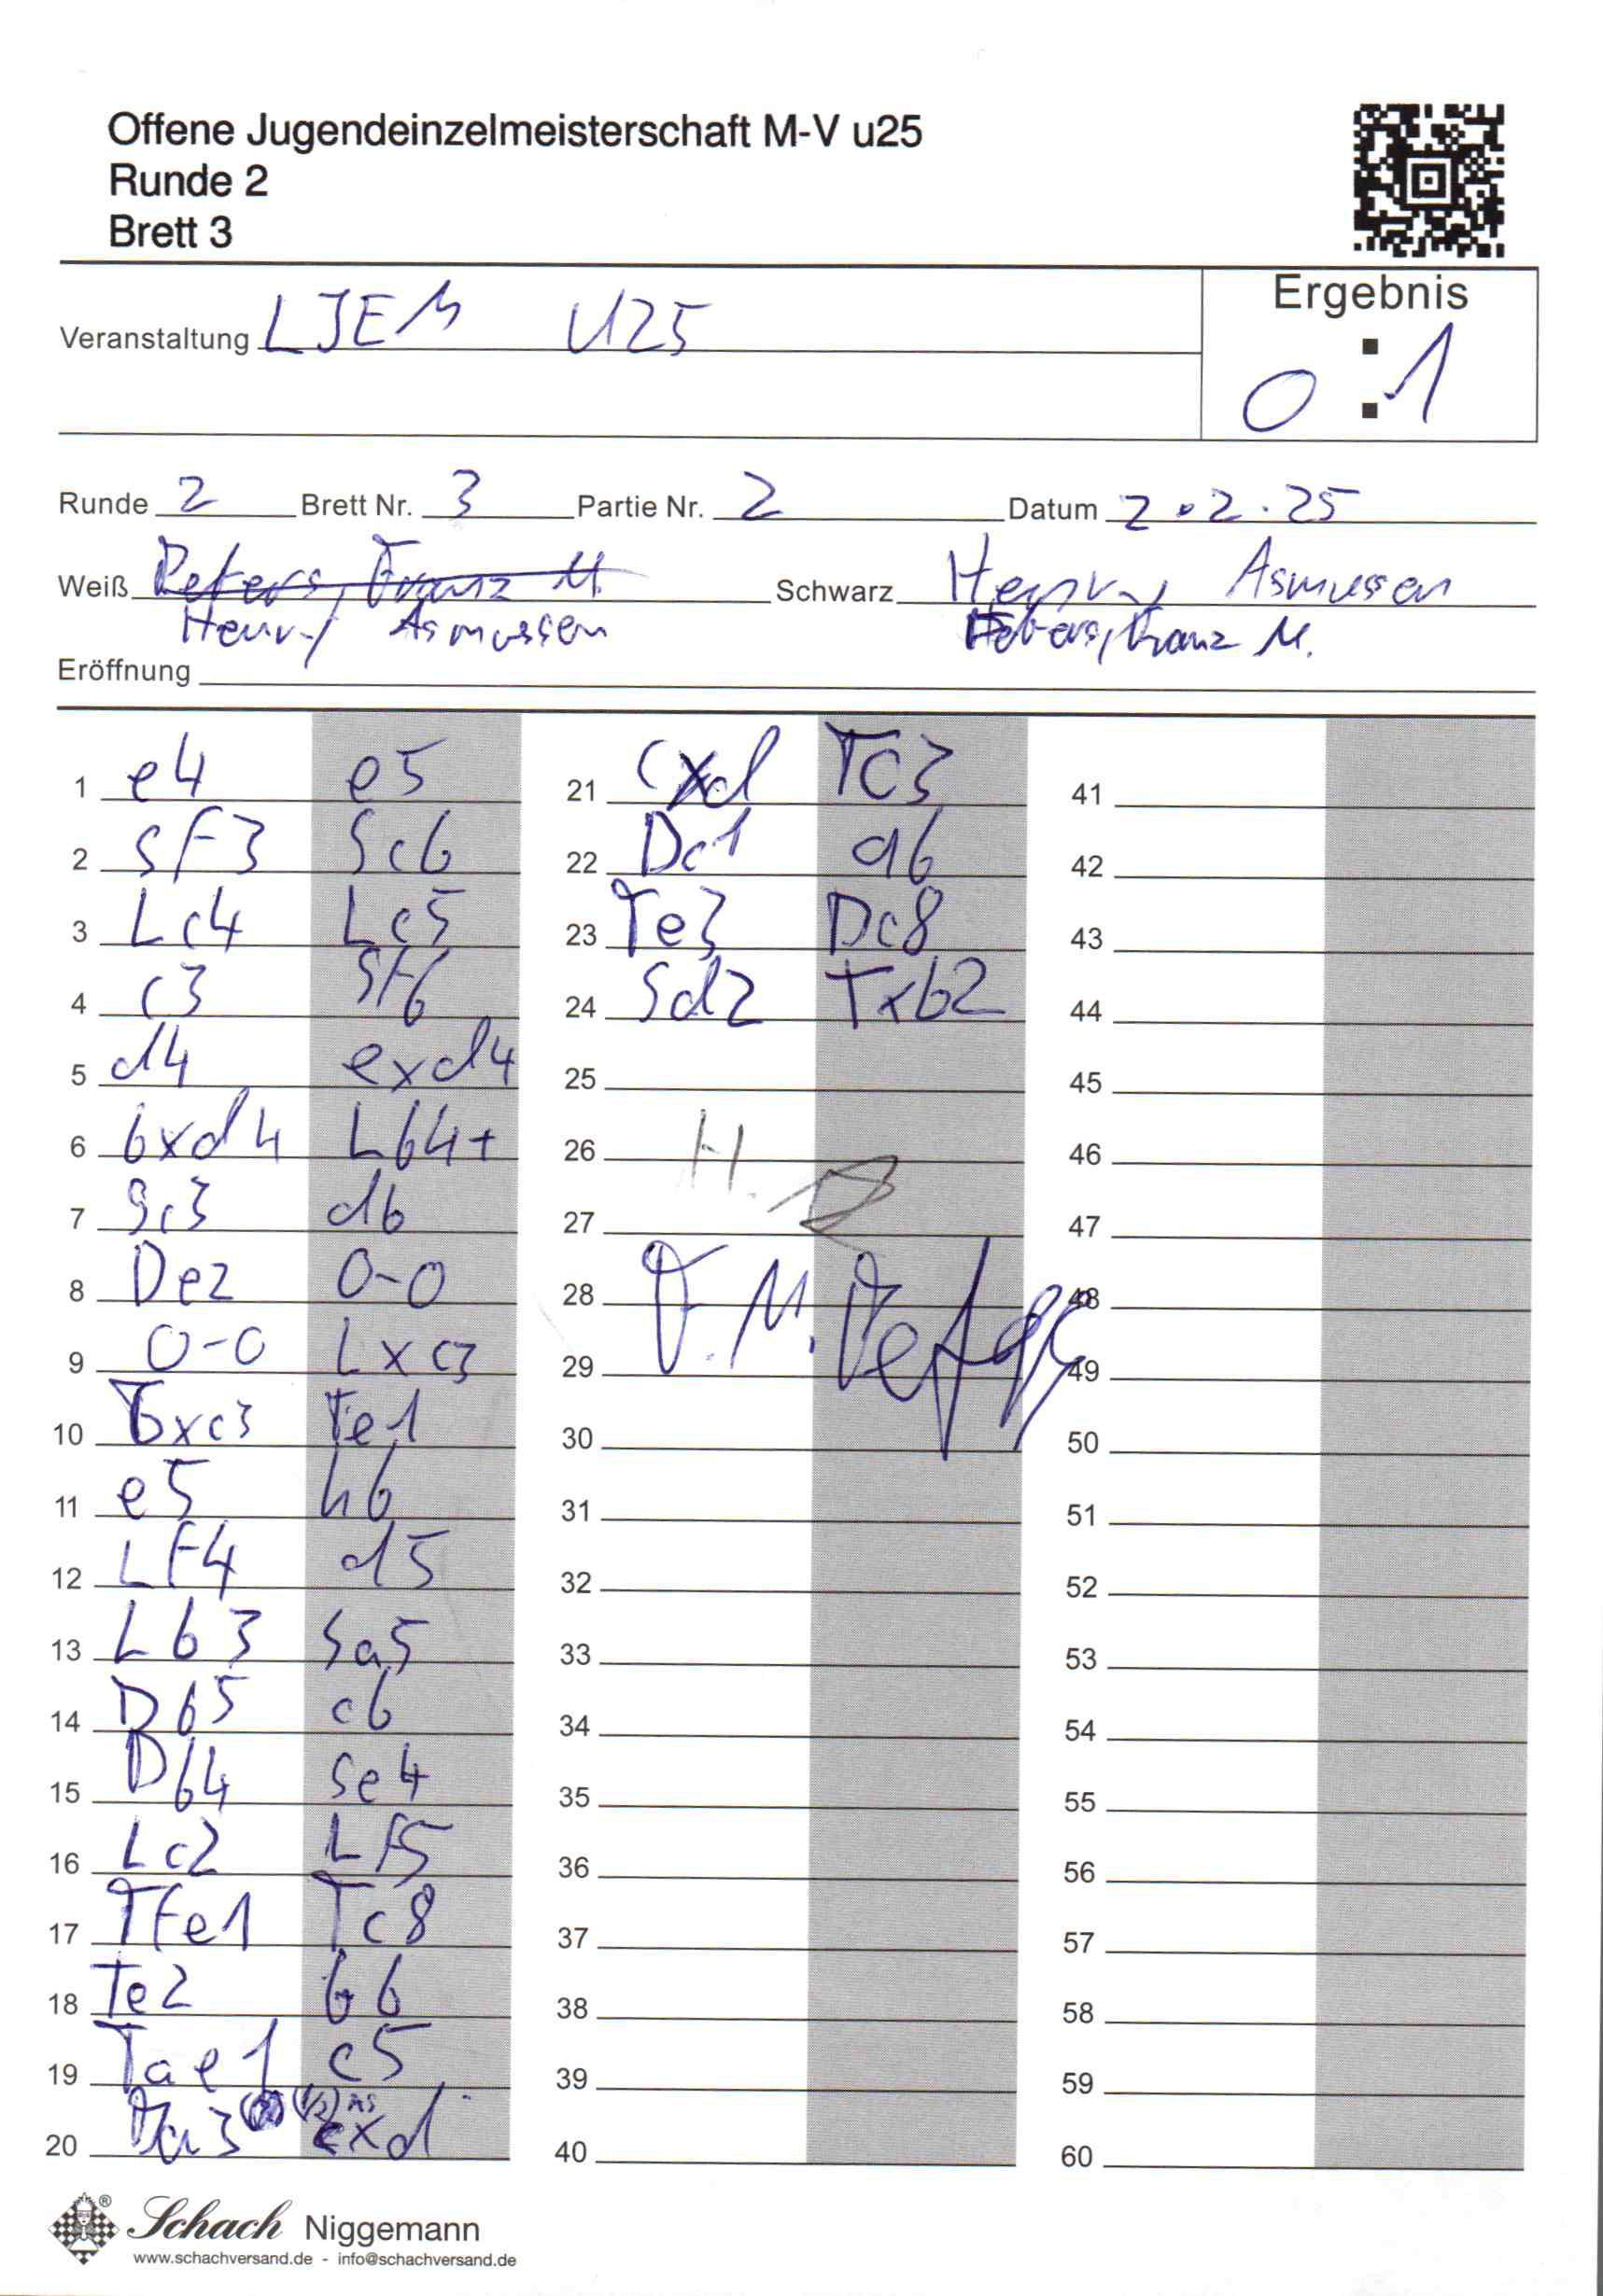 Offene Jugendeinzelmeisterschaft M-V u25
Runde 2
Brett 3
Veranstaltung LJEM U25
Ergebnis
0 : 1
Runde 2 Brett Nr. 3 Partie Nr. 2 Datum 2.2.25
Weiß Peters, Franz M. Schwarz Henry Asmussen
Henry Asmussen Peters, Franz M.
Eröffnung
1 e4 e5
2 Sf3 Sc6
3 Lc4 Lc5
4 c3 Sf6
5 d4 exd4
6 bxd4 Lb4+
7 Sc3 d6
8 De2 0-0
9 0-0 Lxc3
10 bxc3 Te1
11 e5 h6
12 Lf4 d5
13 Lb3 Sa5
14 Db5 c6
15 Db4 Se4
16 Lc2 Lf5
17 Tfe1 Tc8
18 Te2 b6
19 Tae1 c5
20 Da3 cxd
21 cxd Tc3
22 Dc1 a6
23 Te3 Dc8
24 Sd2 Txb2
25
26 H.
27
28 F. M. Peters
29
30
31
32
33
34
35
36
37
38
39
40
41
42
43
44
45
46
47
48
49
50
51
52
53
54
55
56
57
58
59
60
Schach Niggemann
www.schachversand.de - info@schachversand.de